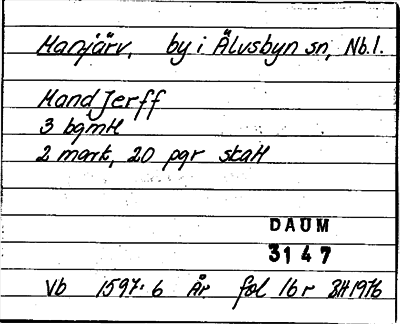 Manjärv, by i Älvsbyn sn, Nb.l.
Mand Jerff
3 bgmH
2 mark, 20 pgr skaH
DAUM
3147
Vb 1597:6 År fol 16r BH1976